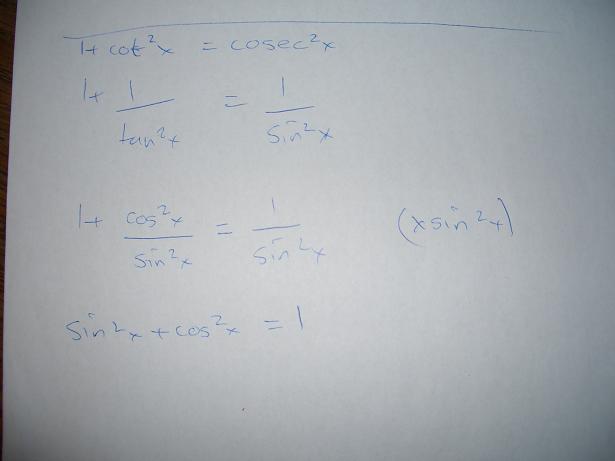 1+ cot²x = cosec²x
1+ 1/tan²x = 1/sin²x
1+ cos²x/sin²x = 1/sin²x (xsin²x)
sin²x + cos²x = 1